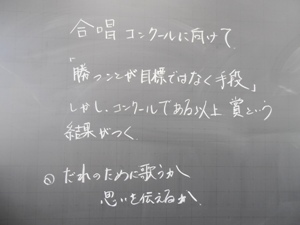 合唱コンクールに向けて
「勝つことが目標ではなく手段」
しかし、コンクールである以上 賞という
結果がつく
だれのために歌うか
思いを伝えるか